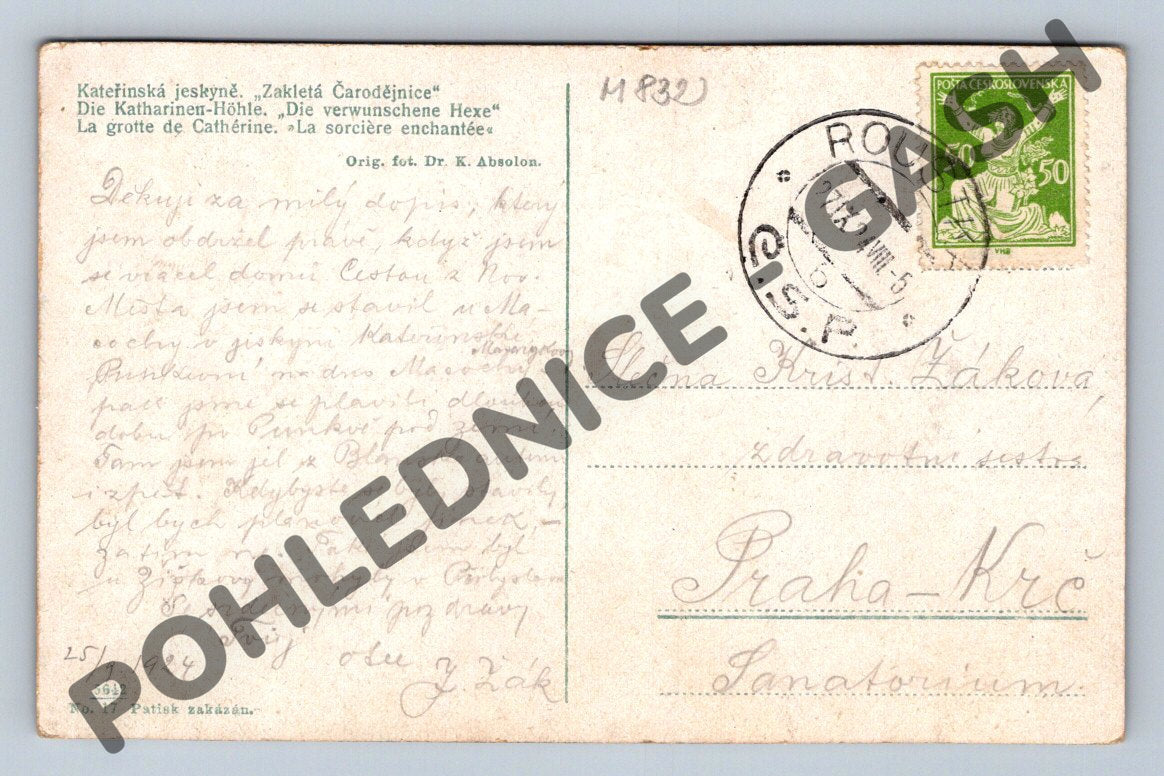 Kateřinská jeskyně. „Zakletá Čarodějnice“
Die Katharinen-Höhle. „Die verwunschene Hexe“
La grotte de Cathérine. »La sorcière enchantée«
Orig. fot. Dr. K. Absolon.
M 832
POŠTA ČESKOSLOVENSKÁ
50 50
VHB
Č.S.P.
Děkuji za milý dopis, který
jsem obdržel právě, když jsem
se vracel domů. Cestou z Nov.
Města jsem se stavil u Ma-
cochy v jeskyni Kateřinské
Punkevní na dno Macochy
pak jsme se plavili dlouhou
dobu po Punkvě pod zemí.
Tam jsem jel z
i zpět. Kdybyste se byli stavily
byl bych
zatím
u v Přibyslavi
Se srdečnými pozdravy
Tvůj
otec J. Žák
25/ 1924
Slečna Krist. Žákova,
zdravotní sestra
Praha - Krč
Sanatorium.
5642
No. 17 Patisk zakázán.
POHLEDNICE GASH